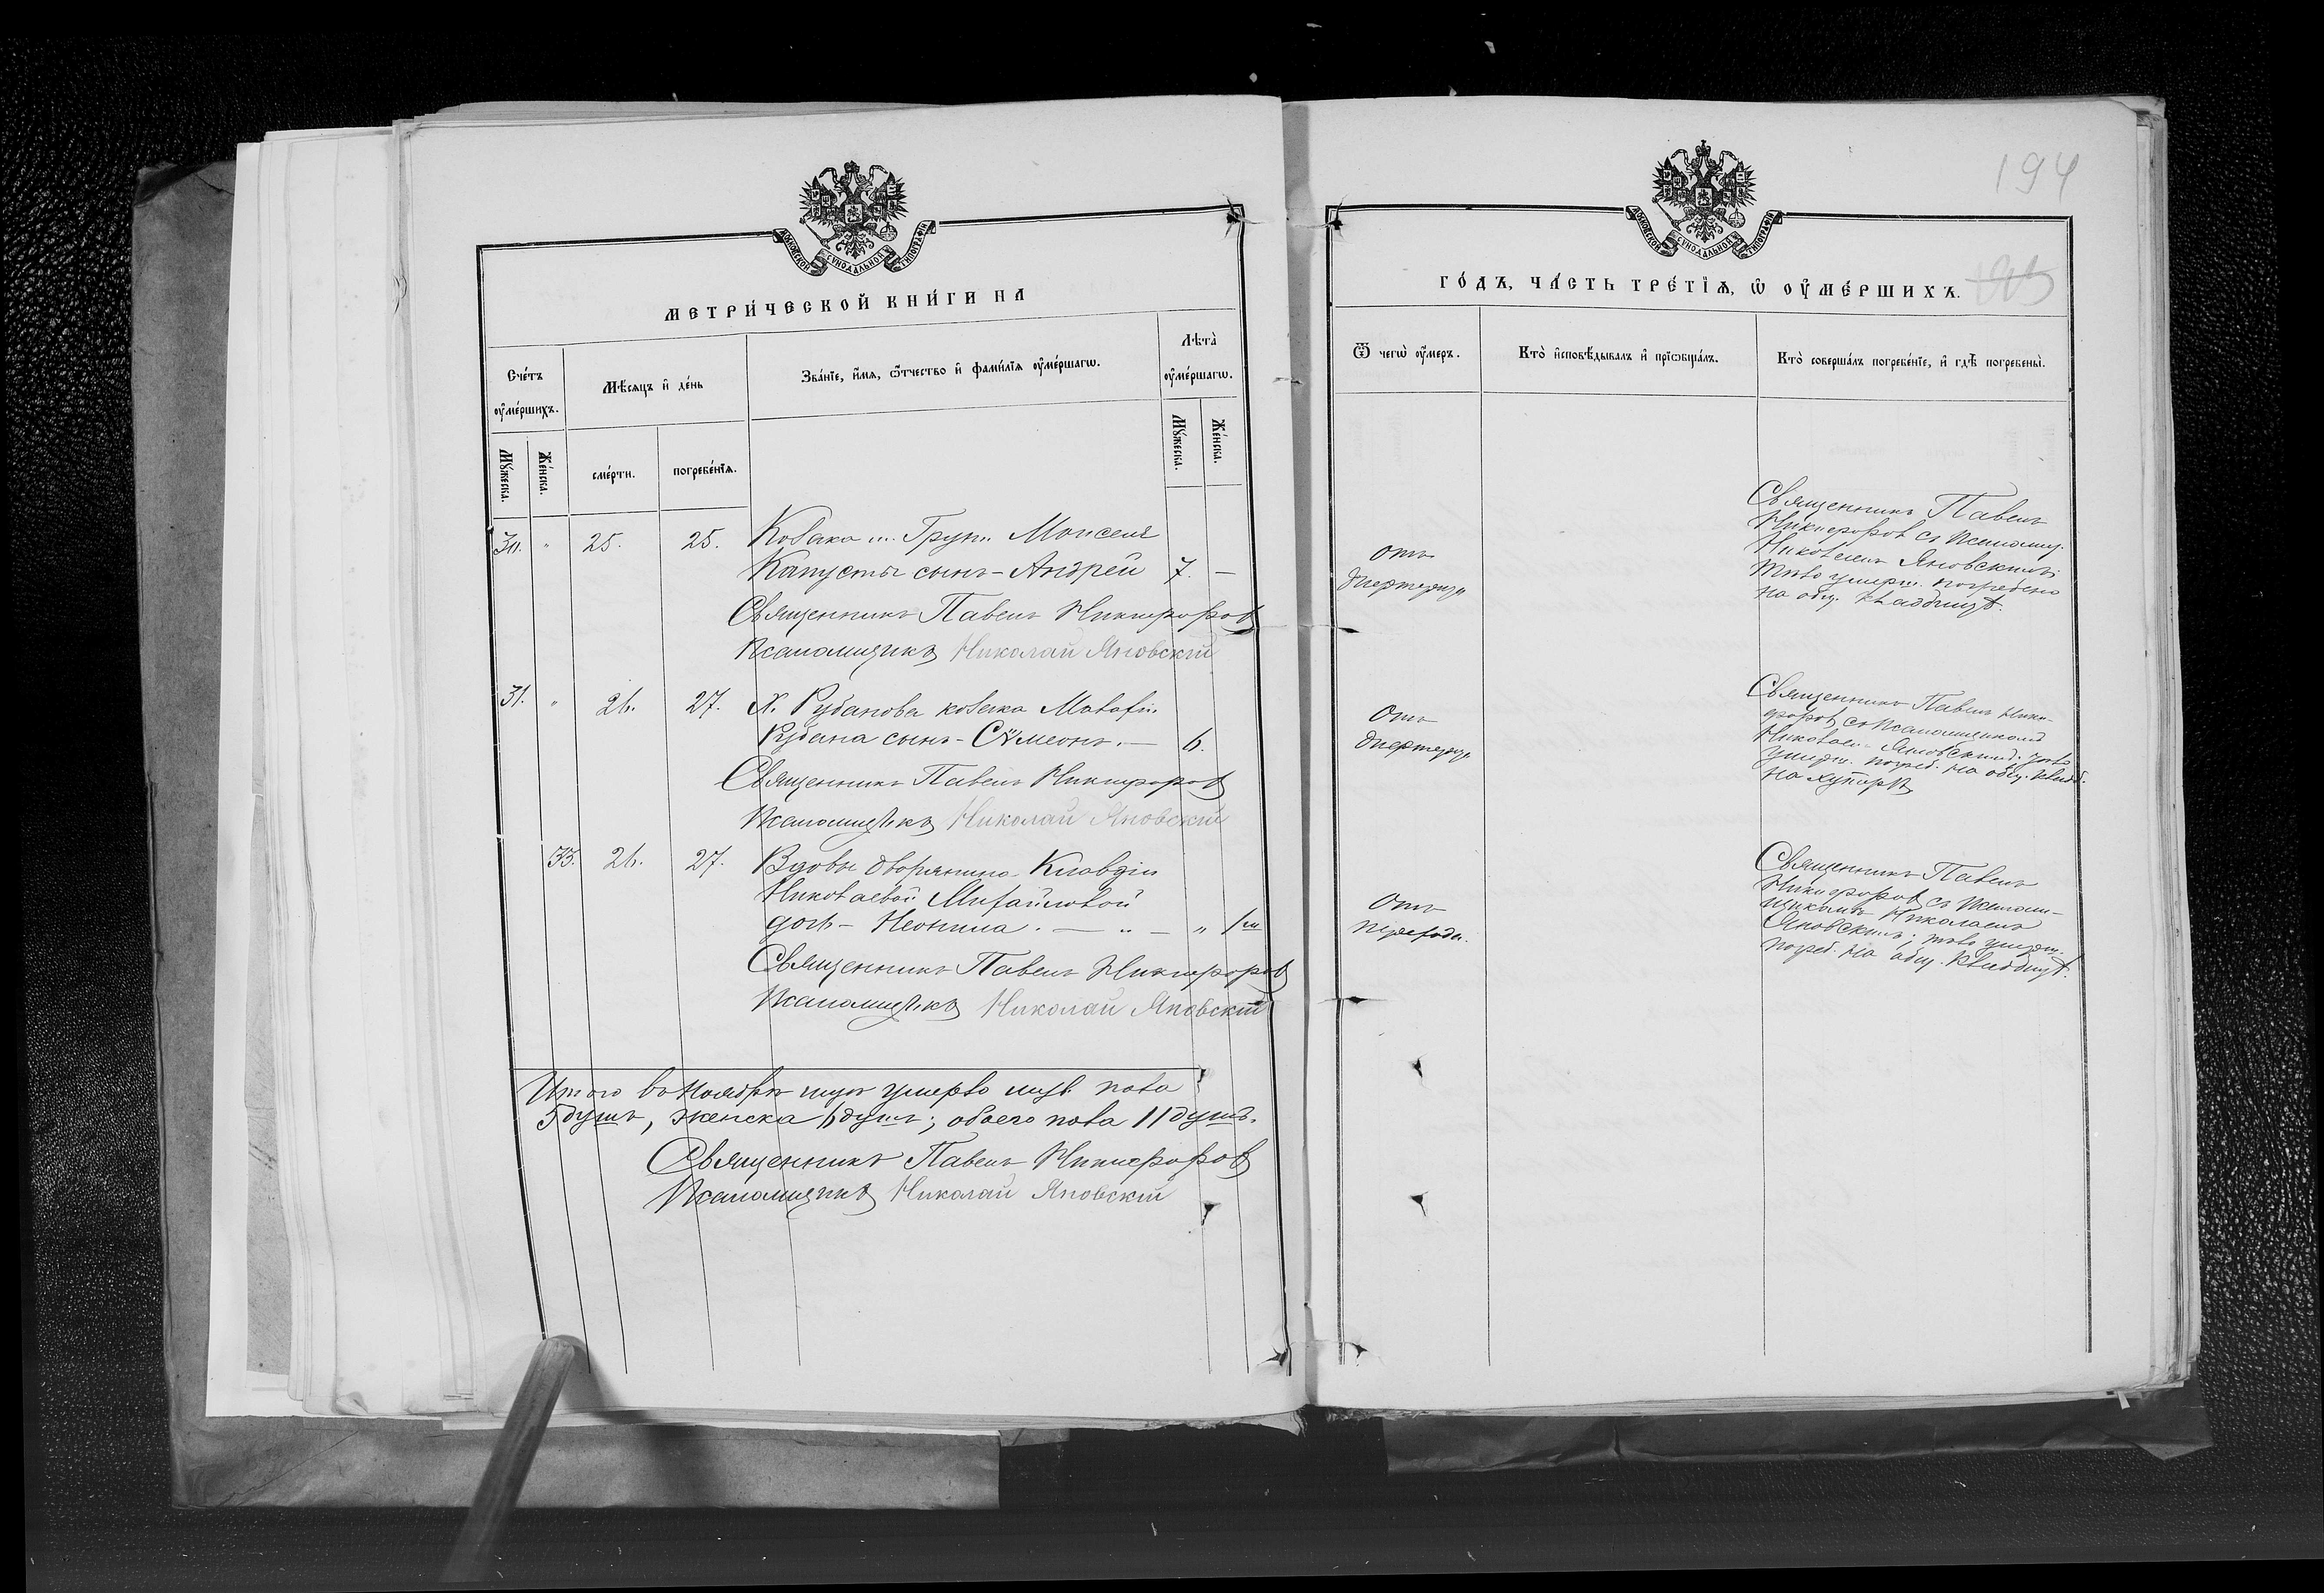 194
МОСКОВСКОЙ СУНОДАЛЬНОЙ ТИПОГРАФІИ
МЕТРИ́ЧЕСКОЙ КНИ́ГИ НА
Сче́тъ ᲂу҆ме́ршихъ.
Мѣ́сяцъ и҆ де́нь
Зва́нїе, и҆́мѧ, ѻ҆́тчество и҆ фами́лїѧ ᲂу҆ме́ршагѡ.
Лѣта̀ ᲂу҆ме́ршагѡ.
Мꙋ́жеска.
Же́нска.
сме́рти.
погребе́нїѧ.
Мꙋ́жеска.
Же́нска.
30. " 25. 25. Козака Моисея
Капусты сынъ - Андрей 7. —
Священникъ Павелъ Никифоровъ
Псаломщикъ Николай Яновскій
31. " 26. 27. Х. Рубанова козака
Рубана сынъ - Сѵмеонъ. — 6.
Священникъ Павелъ Никифоровъ
Псаломщикъ Николай Яновскій
33. 26. 27. Вдовы дворянина Клавдіи
Николаевой Михайловой
дочь - Неонила . — " — " 1 м
Священникъ Павелъ Никифоровъ
Псаломщикъ Николай Яновскій
Итого въ Ноябрѣ умерло муж. пола
5 душъ, женска 6 душъ; обоего пола 11 душъ.
Священникъ Павелъ Никифоровъ
Псаломщикъ Николай Яновскій
МОСКОВСКОЙ СУНОДАЛЬНОЙ ТИПОГРАФІИ
ГО́ДЪ, ЧА́СТЬ ТРЕ́ТЇѦ, Ѡ҆ ОУ҆МЕ́РШИХЪ.
Ѿ чегѡ̀ ᲂу҆́меръ.
Кто̀ и҆сповѣ́дывалъ и҆ прїѡбща́лъ.
Кто̀ соверша́лъ погребе́нїе, и҆ гдѣ̀ погребены̀.
Отъ
дифтерита
Священникъ Павелъ
Никифоровъ съ псаломщ.
Николаемъ Яновскимъ
тѣло умерш. погребено
на общ. кладбищѣ.
Отъ
дифтерита
Священникъ Павелъ Ники-
форовъ съ псаломщикомъ
Николаемъ Яновскимъ. тѣло
умерш. погреб. на общ. кладб.
на хуторѣ
Отъ
Священникъ Павелъ
Никифоровъ съ псалом-
щикомъ Николаемъ
Яновскимъ; тѣло умерш.
погреб. на общ. кладбищѣ.